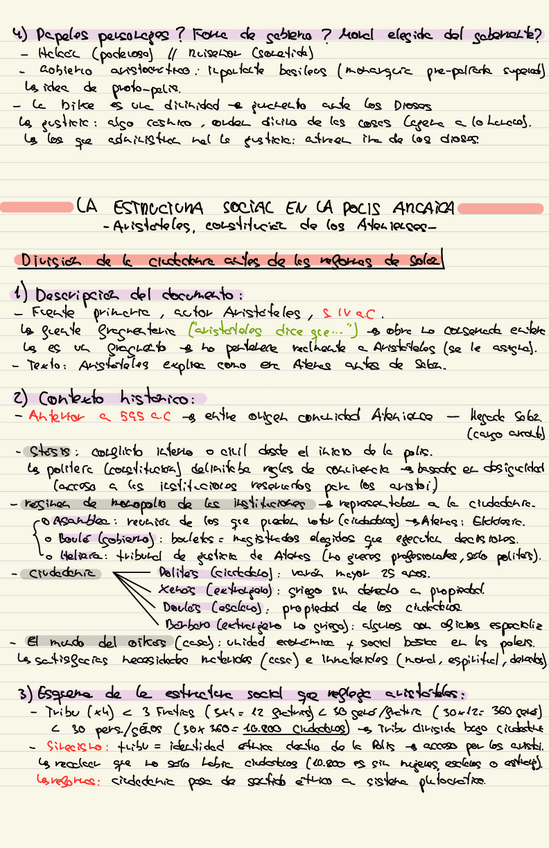 4) Papeles personajes? Forma de gobierno? Moral elegida del gobernante?
- Halcón (poderoso) // Ruiseñor (sometido)
- Gobierno aristocrático: importante basileus (monarquía pre-palicada superada)
↳ idea de proto-polis.
- La Dike es una divinidad → juramento ante los Dioses
↳ justicia: algo cósmico, orden divino de las cosas (ajena a lo humano).
↳ los que administran mal la justicia: atraen ira de los dioses.
LA ESTRUCTURA SOCIAL EN LA POLIS ARCAICA
- Aristóteles, constitución de los Atenienses -
División de la ciudadanía antes de las reformas de Solón
1) Descripción del documento:
- Fuente primaria, autor Aristóteles, S. IV a.C.
↳ fuente fragmentaria ("aristóteles dice que...") → obra no conservada entera
↳ es un fragmento → no pertenece realmente a Aristóteles (se le asigna).
- Texto: Aristóteles explica como era Atenas antes de Solón.
2) Contexto histórico:
- Anterior a 595 a.C → entre origen comunidad Ateniense — llegada Solón
(cargo arconte)
- Stasis: conflicto interno o civil desde el inicio de la polis.
↳ politeia (constitución) delimitaba reglas de convivencia → basadas en desigualdad
(acceso a las instituciones reservados para los aristoi)
- régimen de monopolio de las instituciones → representaban a la ciudadanía.
o Asamblea: reunión de los que pueden votar (ciudadanos) → Atenas: Ekklesia.
o Boulé (gobierno): bouletas = magistrados elegidos que ejecutan decisiones.
o Heliaia: tribunal de justicia de Atenas (no jueces profesionales, solo polites).
- ciudadanía
Polites (ciudadano): varón mayor 25 años.
Xenos (extranjero): griego sin derecho a propiedad.
Doulos (esclavo): propiedad de los ciudadanos
Bárbaro (extranjero no griego): algunos con oficios especializ
- El mundo del oikos (casa): unidad económica y social básica en las poleis.
↳ satisfacías necesidades materiales (casa) e inmateriales (moral, espiritual,
3) Esquema de la estructura social que refleja aristóteles:
- Tribu (x4) < 3 Fratrias (3x4 = 12 fratrias) < 30 genos/fratria (30x12 = 360 genos)
< 30 pers/génos (30 x 360 = 10.800 ciudadanos) → Tribu dividida bajo ciudadanía
- Sinecismo: tribu = identidad étnica dentro de la Polis → acceso por los aristoi.
↳ recalcar que no solo había ciudadanos (10.800 es sin mujeres, esclavos o extranj).
↳ reformas: ciudadanía pasa de sentido étnico a sistema plutocrático.